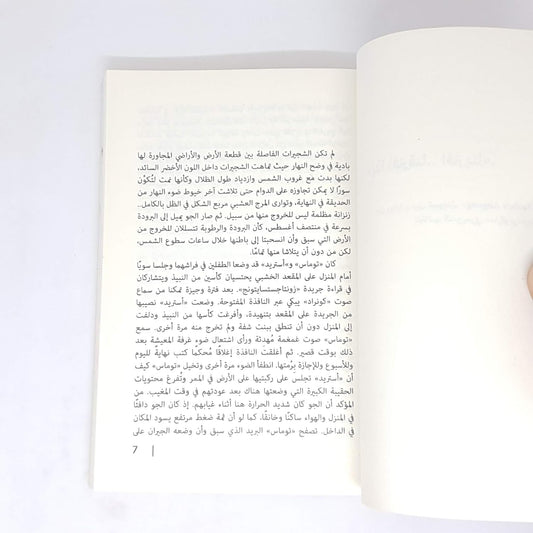 لم تكن الشجيرات الفاصلة بين قطعة الأرض والأراضي المجاورة لها
بادية في وضح النهار حيث تماهت الشجيرات داخل اللون الأخضر السائد،
لكنها بدت مع غروب الشمس وازدياد طول الظلال وكأنها نمت لتُكوِّن
سورًا لا يمكن تجاوزه على الدوام حتى تلاشت آخر خيوط ضوء النهار من
الحديقة في النهاية، وتوارى المرج العشبي مربع الشكل في الظل بالكامل..
زنزانة مظلمة ليس للخروج منها من سبيل. ثم صار الجو يميل إلى البرودة
بسرعة في منتصف أغسطس، كأن البرودة والرطوبة تتسللان للخروج من
الأرض التي سبق وأن انسحبتا إلى باطنها خلال ساعات سطوع الشمس،
لكن من دون أن يتلاشا منها تمامًا.
كان «توماس» و«أستريد» قد وضعا الطفلين في فراشهما وجلسا سويًا
أمام المنزل على المقعد الخشبي يحتسيان كأسين من النبيذ ويتشاركان
في قراءة جريدة «زونتاجستسايتونج». بعد فترة وجيزة تمكنا من سماع
صوت «كونراد» يبكي عبر النافذة المفتوحة. وضعت «أستريد» نصيبها
من الجريدة على المقعد بتنهيدة، وأفرغت كأسها من النبيذ ودلفت
إلى المنزل دون أن تنطق ببنت شفة ولم تخرج منه مرة أخرى. سمع
«توماس» صوت غمغمة مُهدئة ورأى اشتعال ضوء غرفة المعيشة بعد
ذلك بوقت قصير. ثم أغلقت النافذة إغلاقًا مُحكمًا كتب نهايةً لليوم
وللأسبوع وللإجازة برُمتها. انطفأ الضوء مرة أخرى وتخيل «توماس» كيف
أن «أستريد» تجلس على ركبتيها على الأرض في الممر وتُفرغ محتويات
الحقيبة الكبيرة التي وضعتها هناك بعد عودتهم في وقت المغيب. من
المؤكد أن الجو كان شديد الحرارة هنا أثناء غيابهم. إذ كان الجو دافئًا
في المنزل والهواء ساكنًا وخانقًا، كما لو أن ثمة ضغط مرتفع يسود المكان
في الداخل. تصفح «توماس» البريد الذي سبق وأن وضعه الجيران على
7 |